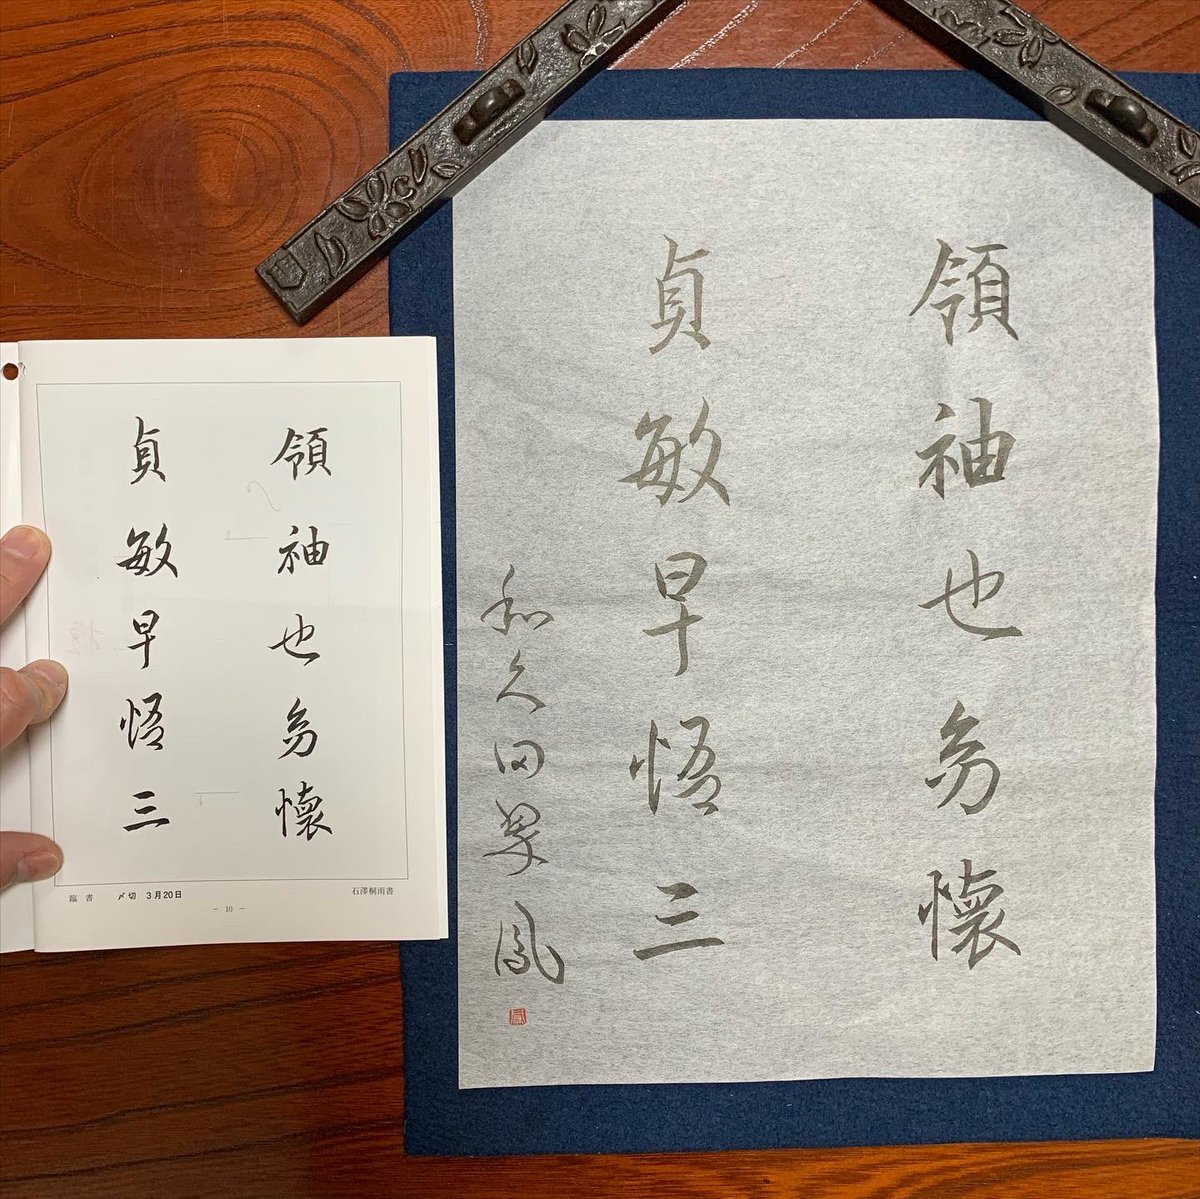 領袖也幼懐
貞敏早悟三
臨書　〆切　3月20日
石澤桐雨書
－ 10 －
領袖也幼懐
貞敏早悟三
和久田翠鳳